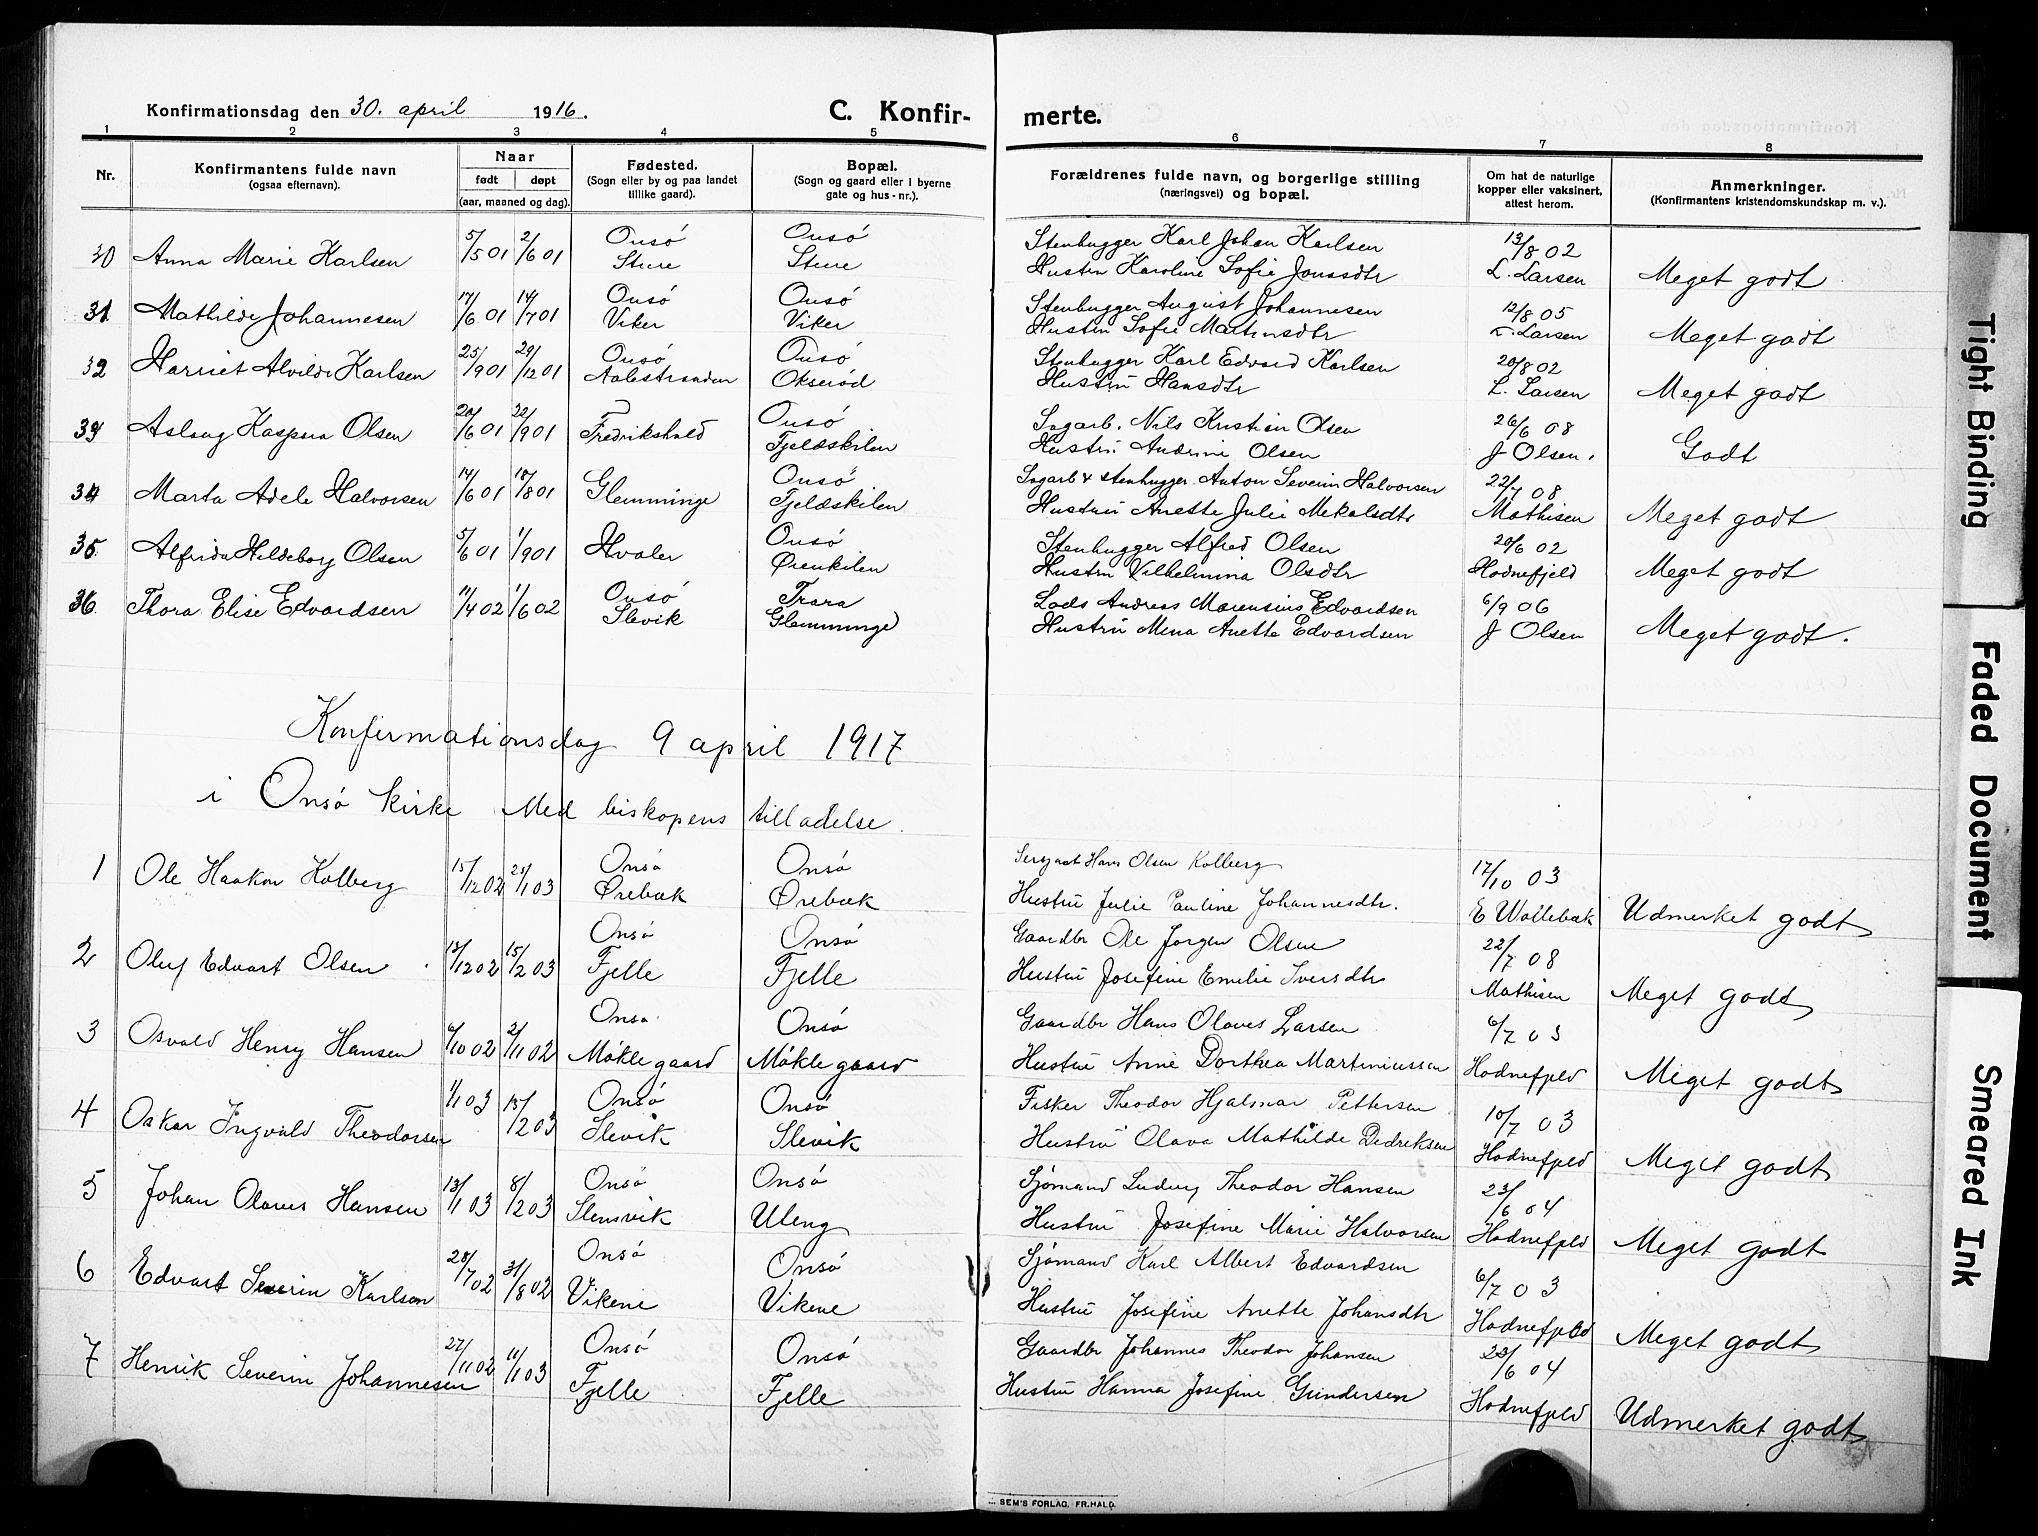 Konfirmationsdag den 30. april 1916.
C. Konfir-
merte.
1 2 3 4 5 6 7 8
Nr.
Konfirmantens fulde navn
(ogsaa efternavn).
Naar
født døpt
(aar, maaned og dag).
Fødested.
(Sogn eller by og paa landet
tillike gaard).
Bopæl.
(Sogn og gaard eller i byerne
gate og hus-nr.).
Forældrenes fulde navn, og borgerlige stilling
(næringsvei) og bopæl.
Om hat de naturlige
kopper eller vaksinert,
attest herom.
Anmerkninger.
(Konfirmantens kristendomskundskap m. v.).
30 Anna Marie Karlsen 5/5 01 2/6 01 Onsø Onsø Stenhugger Karl Johan Karlsen 13/8 02
Sture Sture Hustru Karoline Sofie Jonssdtr L. Larsen Meget godt
31 Mathilde Johannesen 17/6 01 14/7 01 Onsø Onsø Stenhugger August Johannesen 12/8 05
Viker Viker Hustru Sofie Martinsdtr L. Larsen Meget godt
32 Harriet Alvilde Karlsen 25/9 01 29/12 01 Onsø Onsø Stenhugger Karl Edvard Karlsen 20/8 02
Aalestranden Okserød Hustru Hansdtr L. Larsen Meget godt
33 Aslaug Kaspara Olsen 20/6 01 22/9 01 Fredrikshald Onsø Sagarb. Nils Kristian Olsen 26/6 08
Fjeldskilen Hustru Andrine Olsen J Olsen. Godt
34 Marta Adele Halvorsen 14/6 01 18/8 01 Glemminge Onsø Sagarb & stenhugger Anton Severin Halvorsen 22/7 08
Fjeldskilen Hustru Anette Julie Mekalsdtr Mathisen Meget godt
35 Alfrida Hildeborg Olsen 5/6 01 1/9 01 Hvaler Onsø Stenhugger Alfred Olsen 20/6 02
Ørenkilen Hustru Vilhelmina Olsdtr Hodnefjeld Meget godt
36 Thora Elise Edvardsen 11/4 02 1/6 02 Onsø Trara Lods Andreas Marensius Edvardsen 6/9 06
Slevik Glemminge Hustru Mena Anette Edvardsen J Olsen Meget godt.
Konfirmationsdag 9 april 1917
i Onsø kirke Med biskopens tilladelse.
1 Ole Haakon Kolberg 15/12 02 25/1 03 Onsø Onsø Sersjant Hans Olsen Kolberg 17/10 03
Ørebæk Ørebæk Hustru Julie Pauline Johannesdtr. E Wollebæk Udmerket godt
2 Oluf Edvart Olsen 13/12 02 15/2 03 Onsø Onsø Gaardbr Ole Jørgen Olsen 22/7 08
Fjelle Fjelle Hustru Josefine Emelie Iversdtr Mathisen Meget godt
3 Osvald Henry Hansen 6/10 02 2/11 02 Onsø Onsø Gaardbr Hans Olaves Larsen 6/7 03
Møklegaard Møklegaard Hustru Anne Dorthea Martiniussen Hodnefjeld Meget godt
4 Oskar Ingvald Theodorsen 1/1 03 15/2 03 Onsø Onsø Fisker Theodor Hjalmar Pettersen 10/7 03
Slevik Slevik Hustru Olava Mathilde Didreksen Hodnefjeld Meget godt
5 Johan Olaves Hansen 13/1 03 8/2 03 Onsø Onsø Sjømand Ludvig Theodor Hansen 23/6 04
Slensvik Uleng Hustru Josefine Marie Halvorsen Hodnefjeld Meget godt
6 Edvart Severin Karlsen 28/7 02 31/8 02 Onsø Onsø Sjømand Karl Albert Edvardsen 6/7 03
Vikene Vikene Hustru Josefine Anette Johansdtr Hodnefjeld Meget godt
7 Henrik Severin Johannesen 27/11 02 11/1 03 Onsø Onsø Gaardbr Johannes Theodor Johansen 23/6 04
Fjelle Fjelle Hustru Hanna Josefine Gundersen Hodnefjeld Udmerket godt
SEM'S FORLAG, FR.HALD.
Tight Binding
Faded Document
Smeared Ink